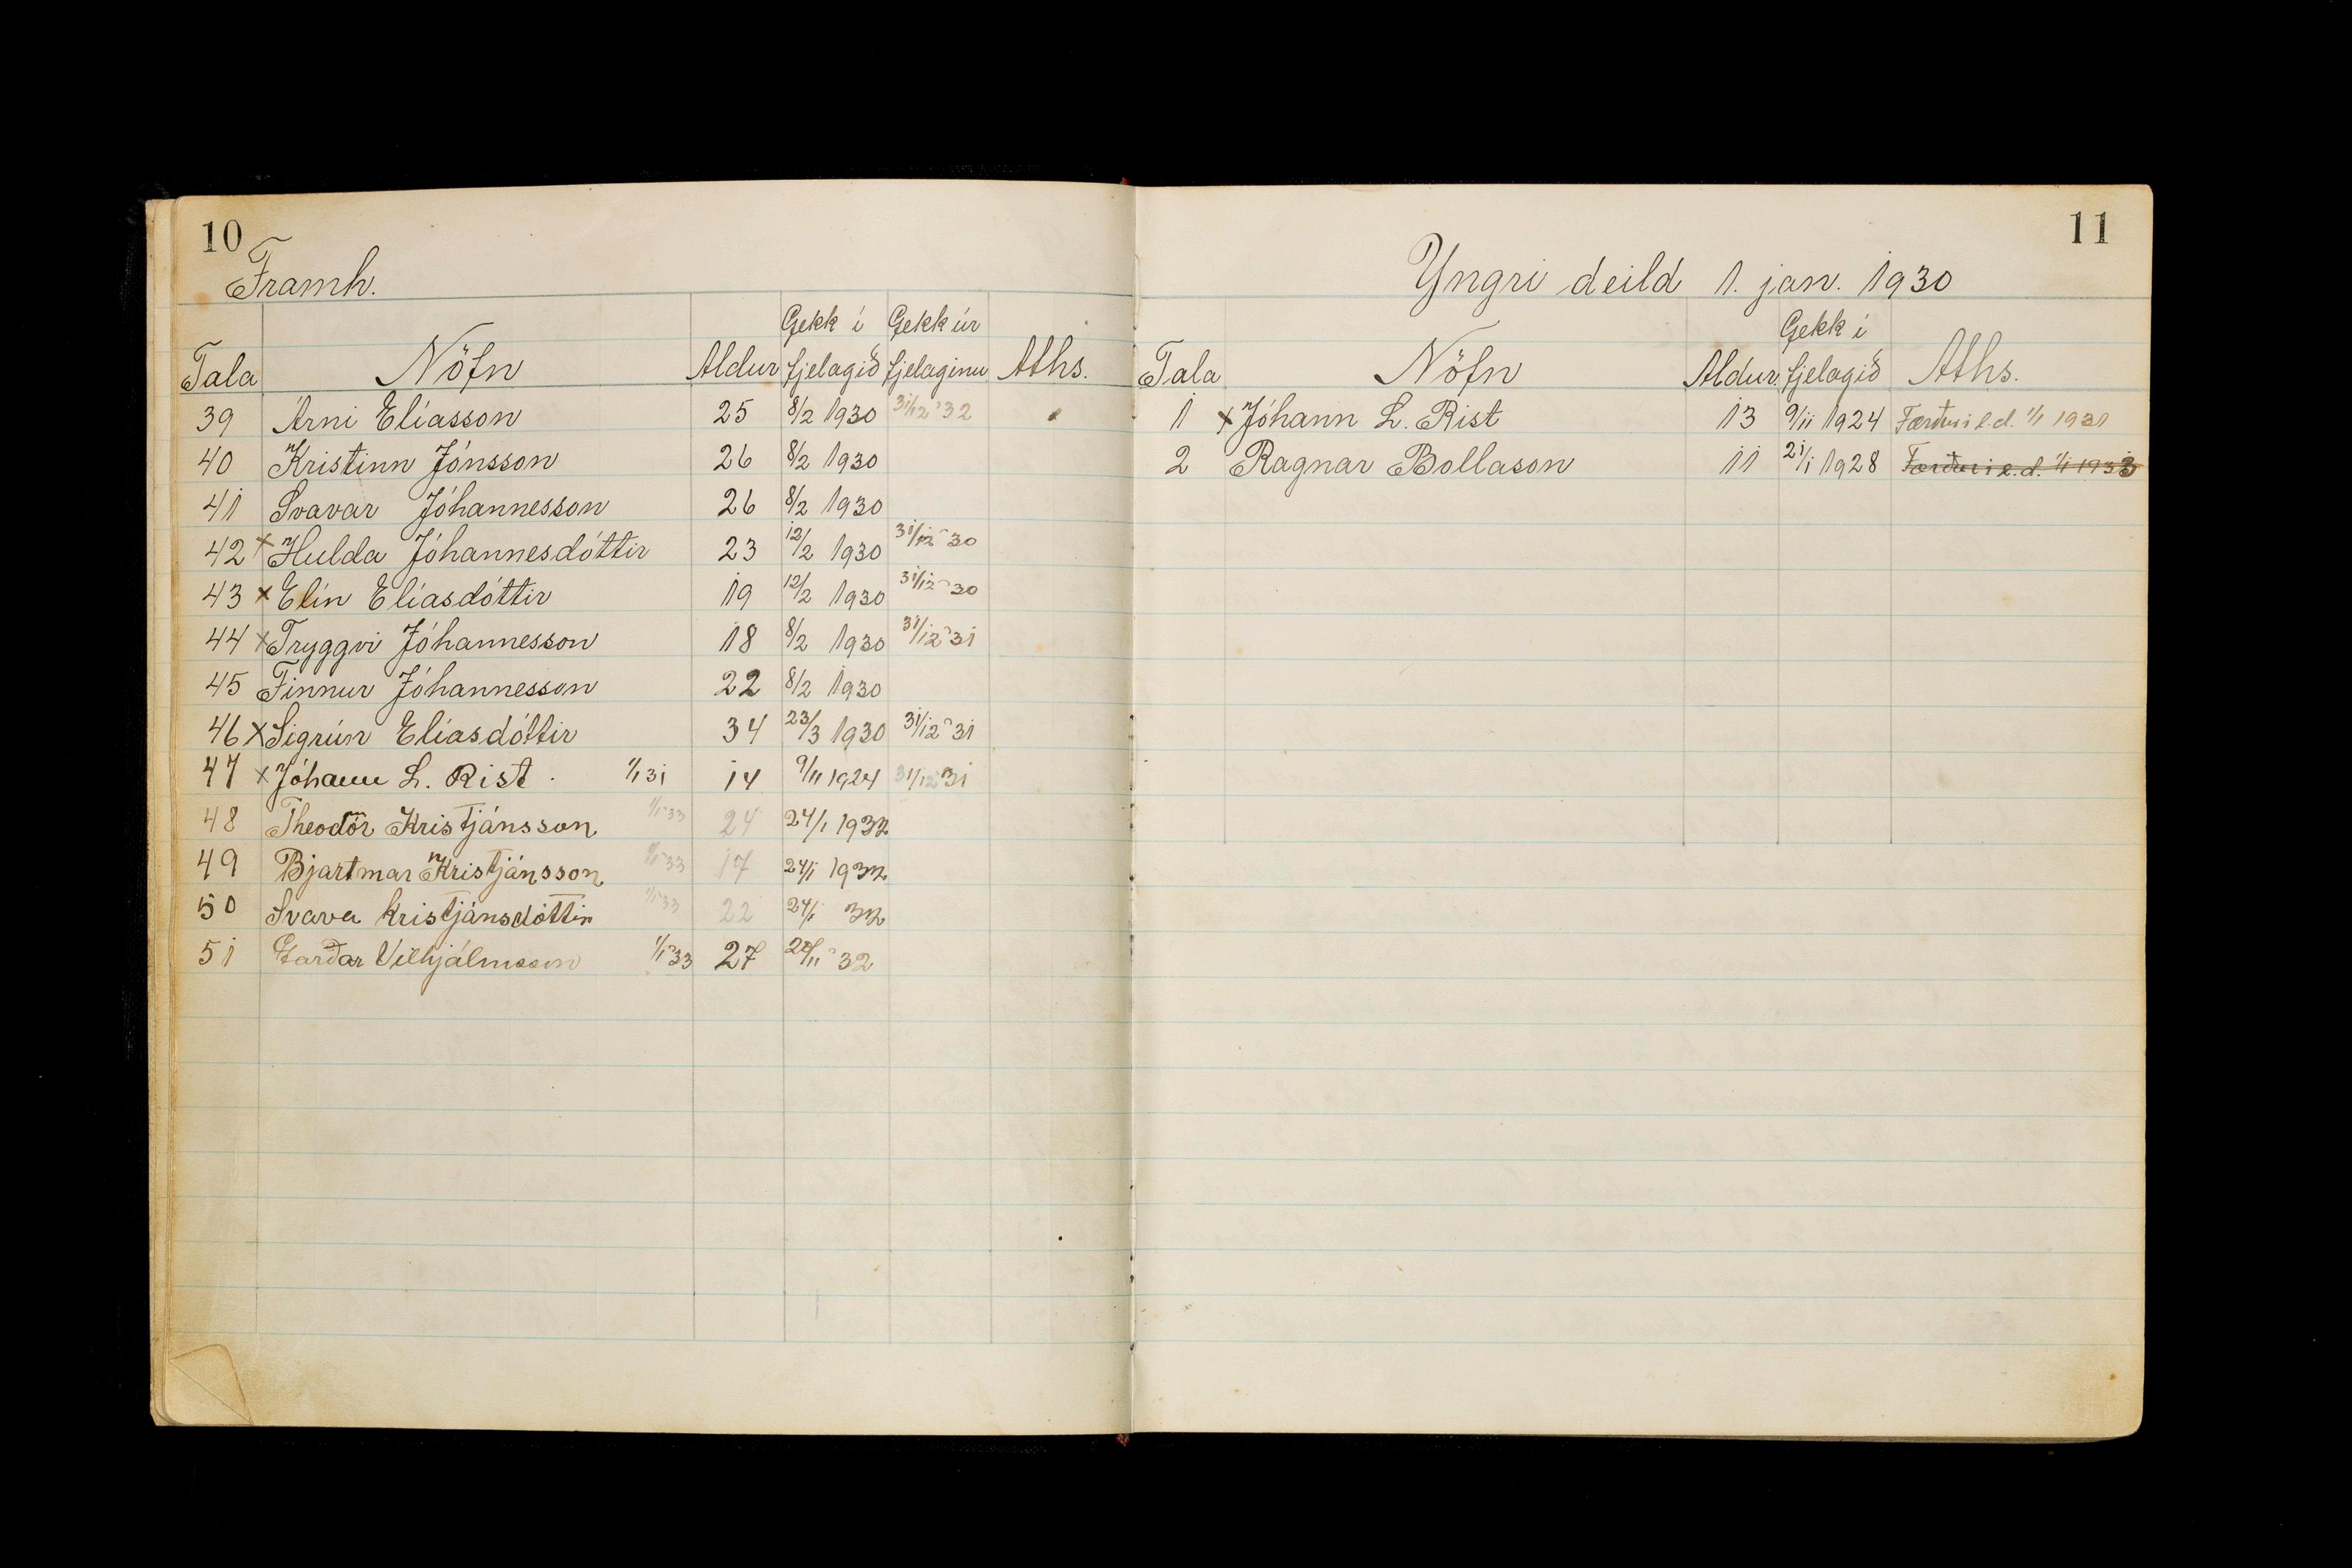 10
Framh.
Tala Nöfn Aldur Gekk í fjelagið Gekk úr fjelaginu Aths.
39 Árni Elíasson 25 8/2 1930 31/12 '32
40 Kristinn Jónsson 26 8/2 1930
41 Svavar Jóhannesson 26 8/2 1930
42 x Hulda Jóhannesdóttir 23 12/2 1930 31/12 '30
43 x Elín Elíasdóttir 19 12/2 1930 31/12 '30
44 x Tryggvi Jóhannesson 18 8/2 1930 31/12 '31
45 Finnur Jóhannesson 22 8/2 1930
46 x Sigrún Elíasdóttir 34 23/3 1930 31/12 '31
47 x Jóhann L. Rist 1/1 31 14 9/11 1924 31/12 31
48 Theodór Kristjánsson 1/1 '33 24 24/1 1932
49 Bjartmar Kristjánsson 1/1 '33 17 24/1 1932
50 Svava Kristjánsdóttir 1/1 '33 22 24/1 32
51 Garðar Vilhjálmsson 1/1 '33 27 '32
11
Yngri deild 1. jan. 1930
Tala Nöfn Aldur Gekk í fjelagið Aths.
1 x Jóhann L. Rist 13 9/11 1924 Færður í e.d. 1/1 1931
2 Ragnar Bollason 11 21/1 1928 Færður í e.d. 1/1 1933